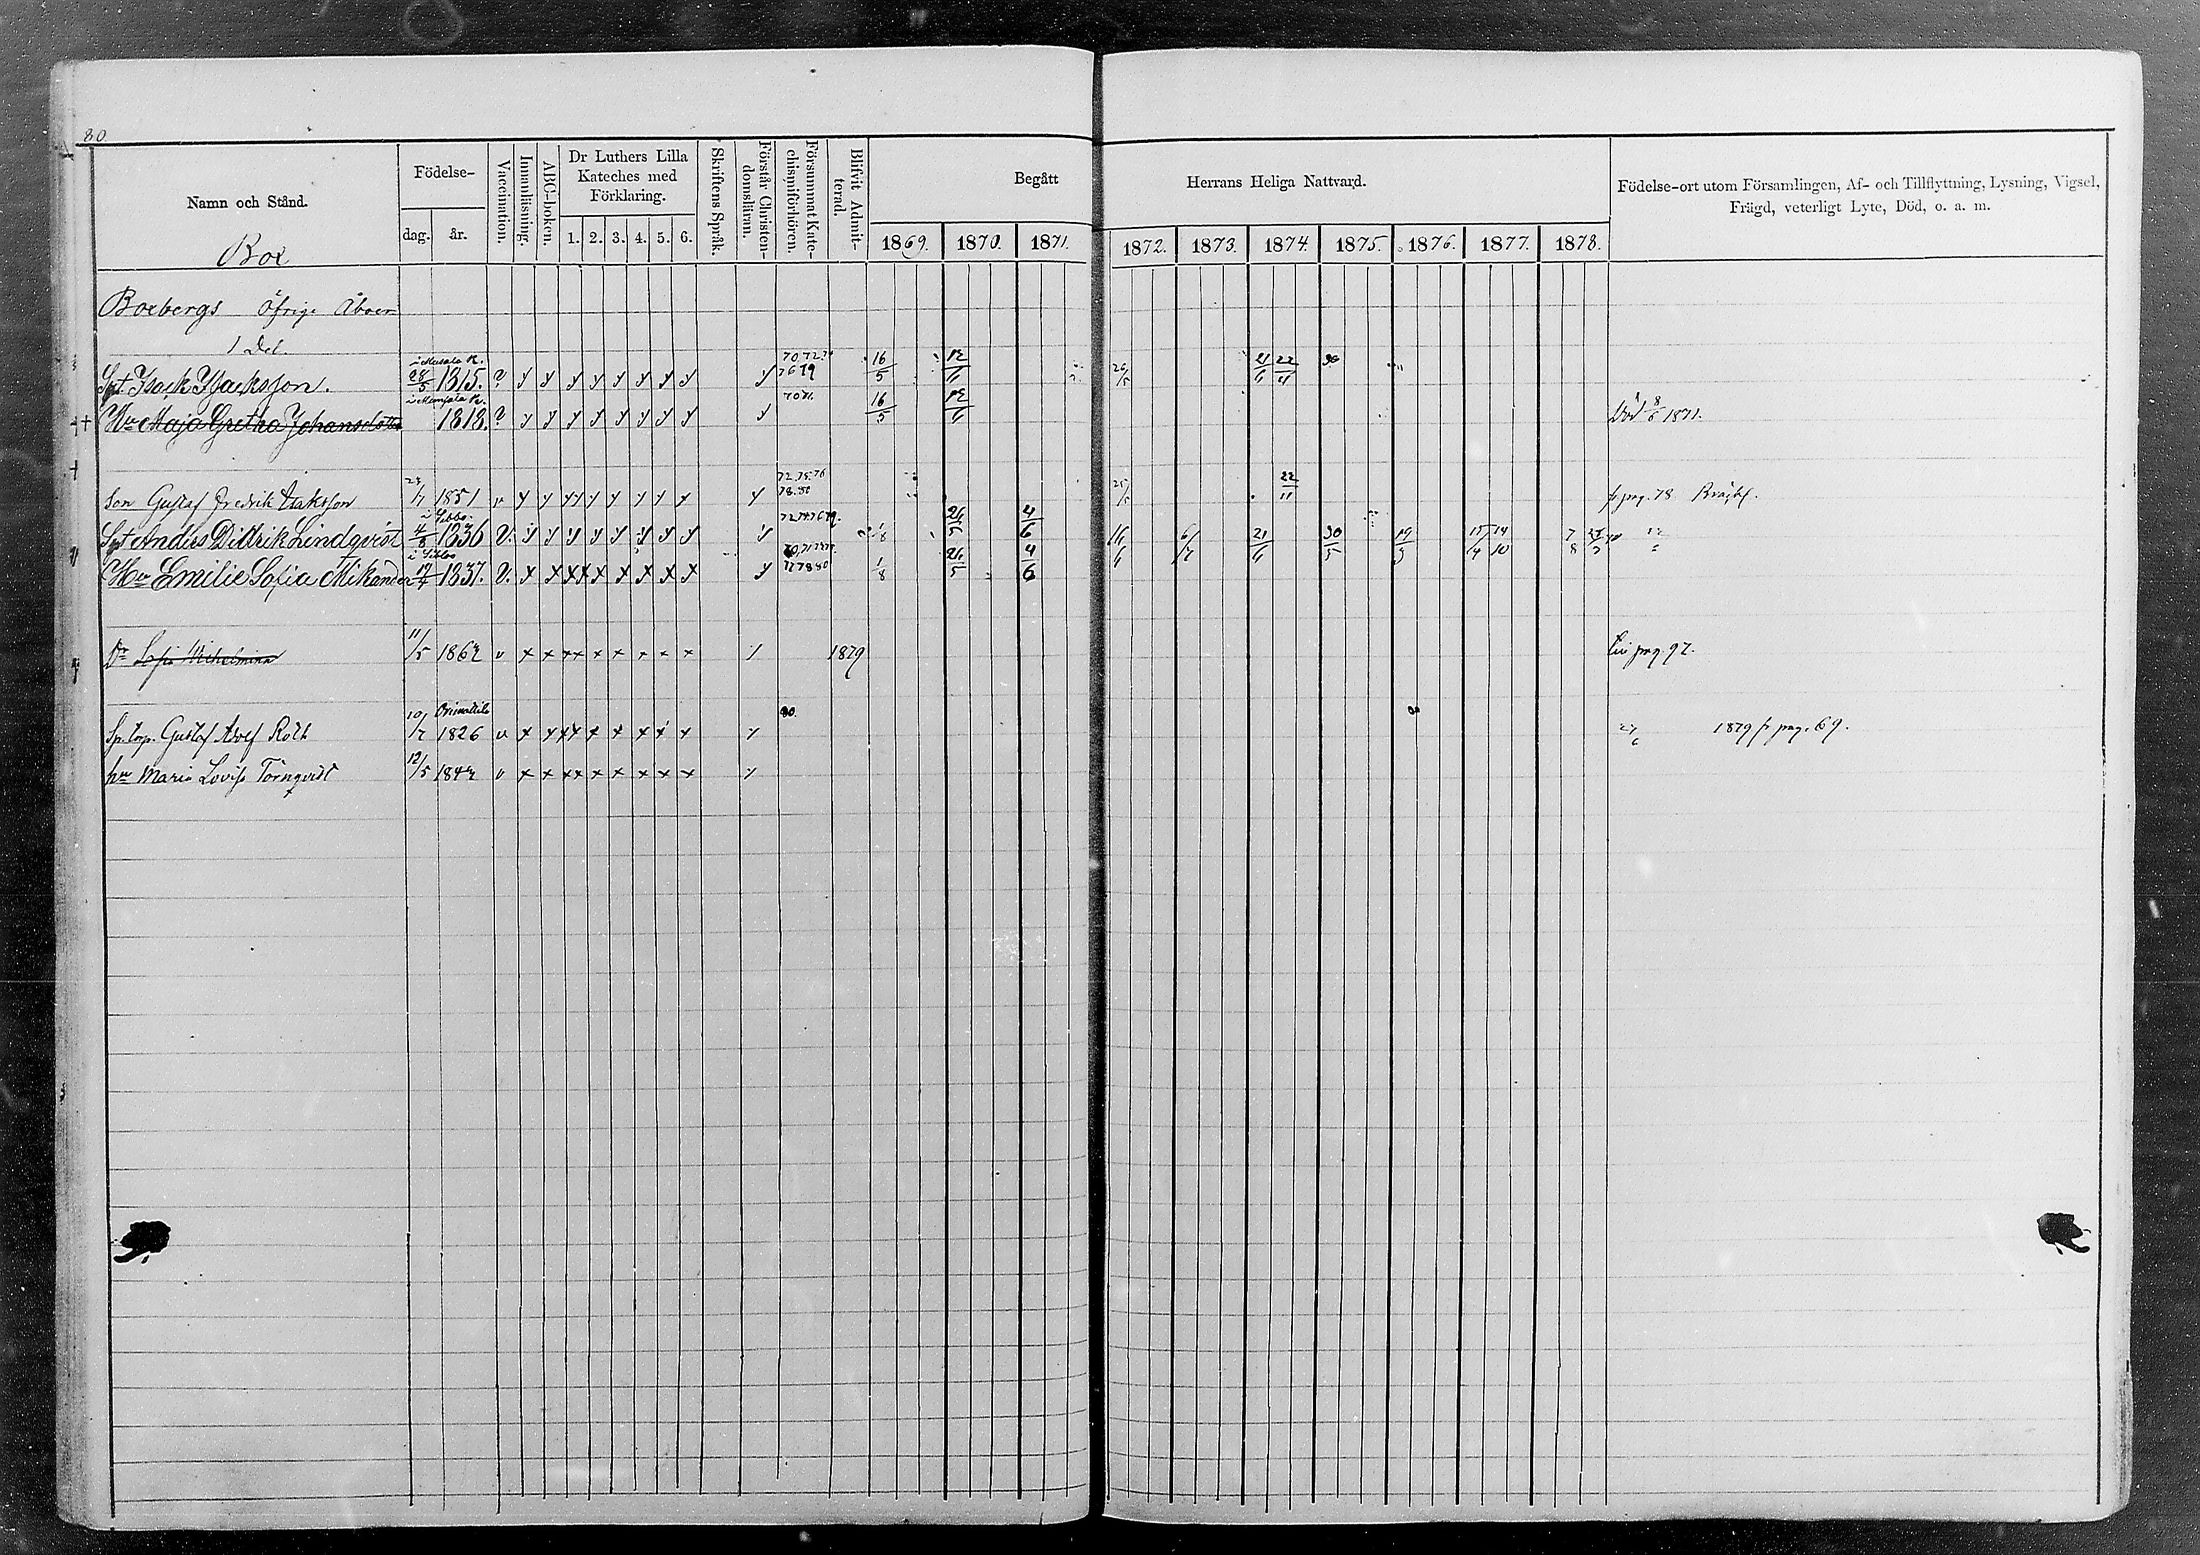 80.
Namn och Stånd.
Födelse-
dag. år.
Vaccination.
Innanläsning.
ABC-boken.
Dr Luthers Lilla
Kateches med
Förklaring.
1. 2. 3. 4. 5. 6.
Skriftens Språk.
Förstår Christen-
domsläran.
Försummat Kate-
chismiförhören.
Blifvit Admit-
terad.
Begått Herrans Heliga Nattvard.
1869. 1870. 1871. 1872. 1873. 1874. 1875. 1876. 1877. 1878.
Födelse-ort utom Församlingen, Af- och Tillflyttning, Lysning, Vigsel,
Frägd, veterligt Lyte, Död, o. a. m.
Box
Boxbergs öfrige Åboer
1 Del.
28/5 1815. v y y y y y y y y y 16/5 12/6 26/5 21/6 22/11 30
Hu Maja Gretha Johansdotter 1818. v y y y y y y y y y 70 71. 16/5 12/6 Död 8/6 1871.
72.75.76
Son Gustaf Fredrik Isaksson 23/7 1851 v y y y y y y y y y 78.80 25/5 22/11 fr pag. 78
i Sibbo
Spt Anders Dittrik Lindqvist 4/8 1836 V. y y y y y y y y y 1/8 26/5 4/6 16/6 6/7 21/6 30/5 19/3 15/4 14/10
i Sibbo
Hu Emilie Sofia Mikander 17/4 1837. V. x x x x x x x x y 1/8 26/5 4/6
Dr Sofia Wilhelmina 11/5 1862 v x x x x x x x x 1879 pag. 97.
Orimattila 80.
Sp. torp. Gustaf Adolf Roth 10/7 1826 v x x x x x x x x 27/6 1879 fr pag. 69.
hu Maria Lovisa Törnqvist 12/5 1842 v x x x x x x x x